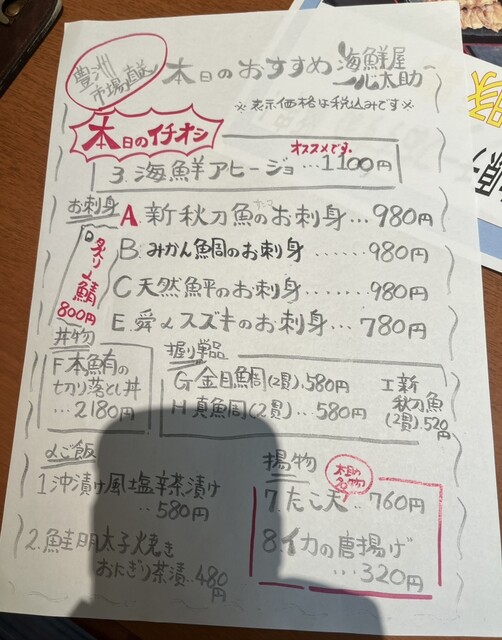 豊洲
市場直送
本日のおすすめ 海鮮屋
心太助
※表示価格は税込みです※
本日のイチオシ
オススメです。
3.海鮮アヒージョ…1100円
お刺身
A.新秋刀魚のお刺身…980円
B.みかん鯛のお刺身……980円
C天然鮃のお刺身……980円
D
炙り〆鯖
800円
E.舜〆スズキのお刺身…780円
丼物
F本鮪の
切り落とし丼
…2180円
握り単品
G金目鯛(2貫).580円
H真鯛(2貫)…580円
I新
秋刀魚
(2貫).520円
〆ご飯
1.沖漬け風塩辛茶漬け
…580円
2.鮭明太子焼き
おにぎり茶漬…480円
揚物
本日の
7.たこ天…760円
8.イカの唐揚げ
…320円